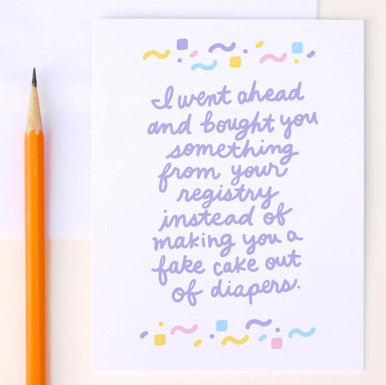 I went ahead
and bought you
something
from your
registry
instead of
making you a
fake cake out
of diapers.